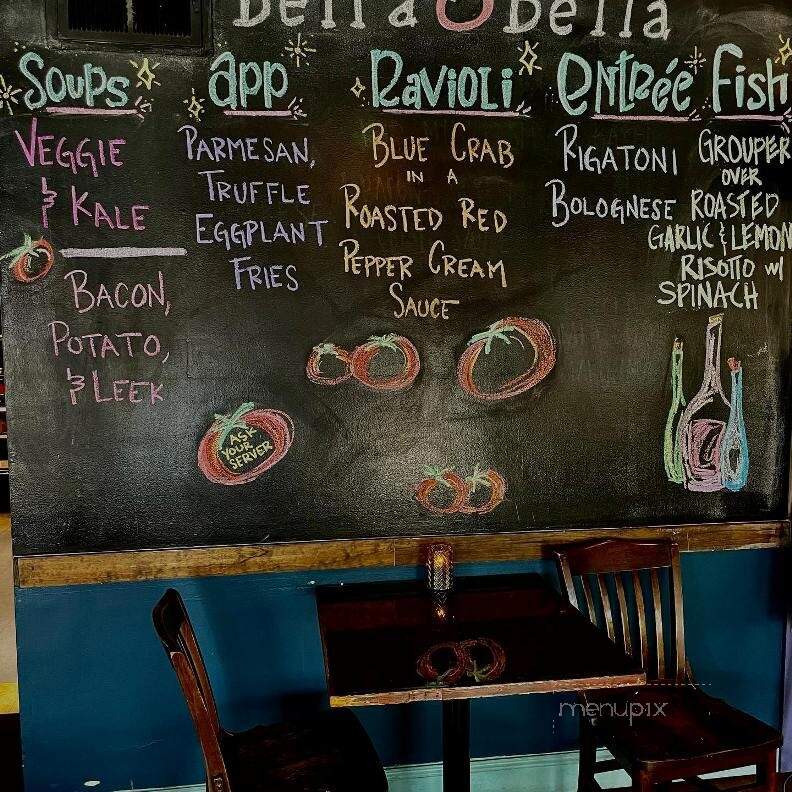 Bella Bella
Soups
VEGGIE
& KALE
BACON,
POTATO,
& LEEK
app
PARMESAN,
TRUFFLE
EGGPLANT
FRIES
RAVIOLI
BLUE CRAB
IN A
ROASTED RED
PEPPER CREAM
SAUCE
entrée
RIGATONI
BOLOGNESE
fish
GROUPER
OVER
ROASTED
GARLIC & LEMON
RISOTTO w/
SPINACH
ASK
YOUR
SERVER
menupix